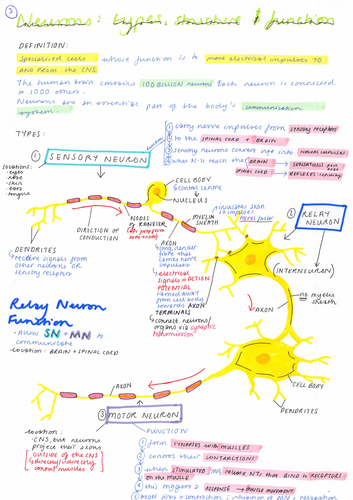 3
Neurons: types, structure & function
DEFINITION:
Specialised cells whose function is to move electrical impulses TO
AND FROM the CNS.
The human brain contains 100 BILLION neurons. Each neuron is connected
to 1000 others.
Neurons are an essential part of the body's communication
system.
TYPES:
① SENSORY NEURON
function
① carry nerve impulses from sensory receptors
to the SPINAL CORD + BRAIN
② sensory neurons convert info into neural impulses
③ when N.I. reach the BRAIN → SENSATIONS
SPINAL CORD → REFLEXES
locations:
- eyes
- skin
- ears
- tongue
CELL BODY
control centre
NUCLEUS
DIRECTION OF
CONDUCTION
NODES OF
RANVIER
MYELIN
SHEATH
② RELAY
NEURON
(INTERNEURON)
DENDRITES
receive signals from
other neurons OR
sensory receptors
AXON
long slender
fibre that
carries nerve
impulses
electrical
signals = ACTION
POTENTIAL
carried away
from cell body
towards AXON
TERMINALS
connect neurons/
organs via synaptic
transmission
no myelin
sheath
AXON
Relay Neuron
Function
- Allow SN + MN to
communicate
location: BRAIN + SPINAL CORD
CELL BODY
AXON
DENDRITES
③ MOTOR NEURON
location:
- CNS, but neurons
project their axons
outside of the CNS
directly/indirectly
control muscles
FUNCTION
① form SYNAPSES WITH MUSCLES
② control their CONTRACTIONS
③ when STIMULATED, MN release NTs that BIND to RECEPTORS
ON the MUSCLE
④ this triggers a RESPONSE → MUSCLE MOVEMENT